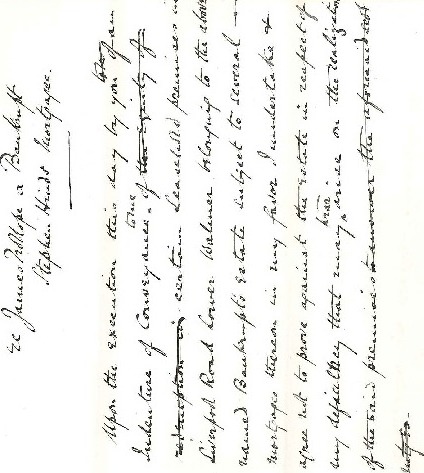 re James Pollope a Bankrupt
Stephen Hinds Mortgagee.
Upon the execution this day by you of an
Indenture of Conveyance to me of the equity of
redemption in certain leasehold premises in
Liverpool Road Lower Walmer belonging to the above
named Bankrupt's Estate subject to several
mortgages thereon in my favor I undertake &
agree not to prove against the estate in respect of
any deficiency that may arise on the realization
of the said premises to answer the aforesaid